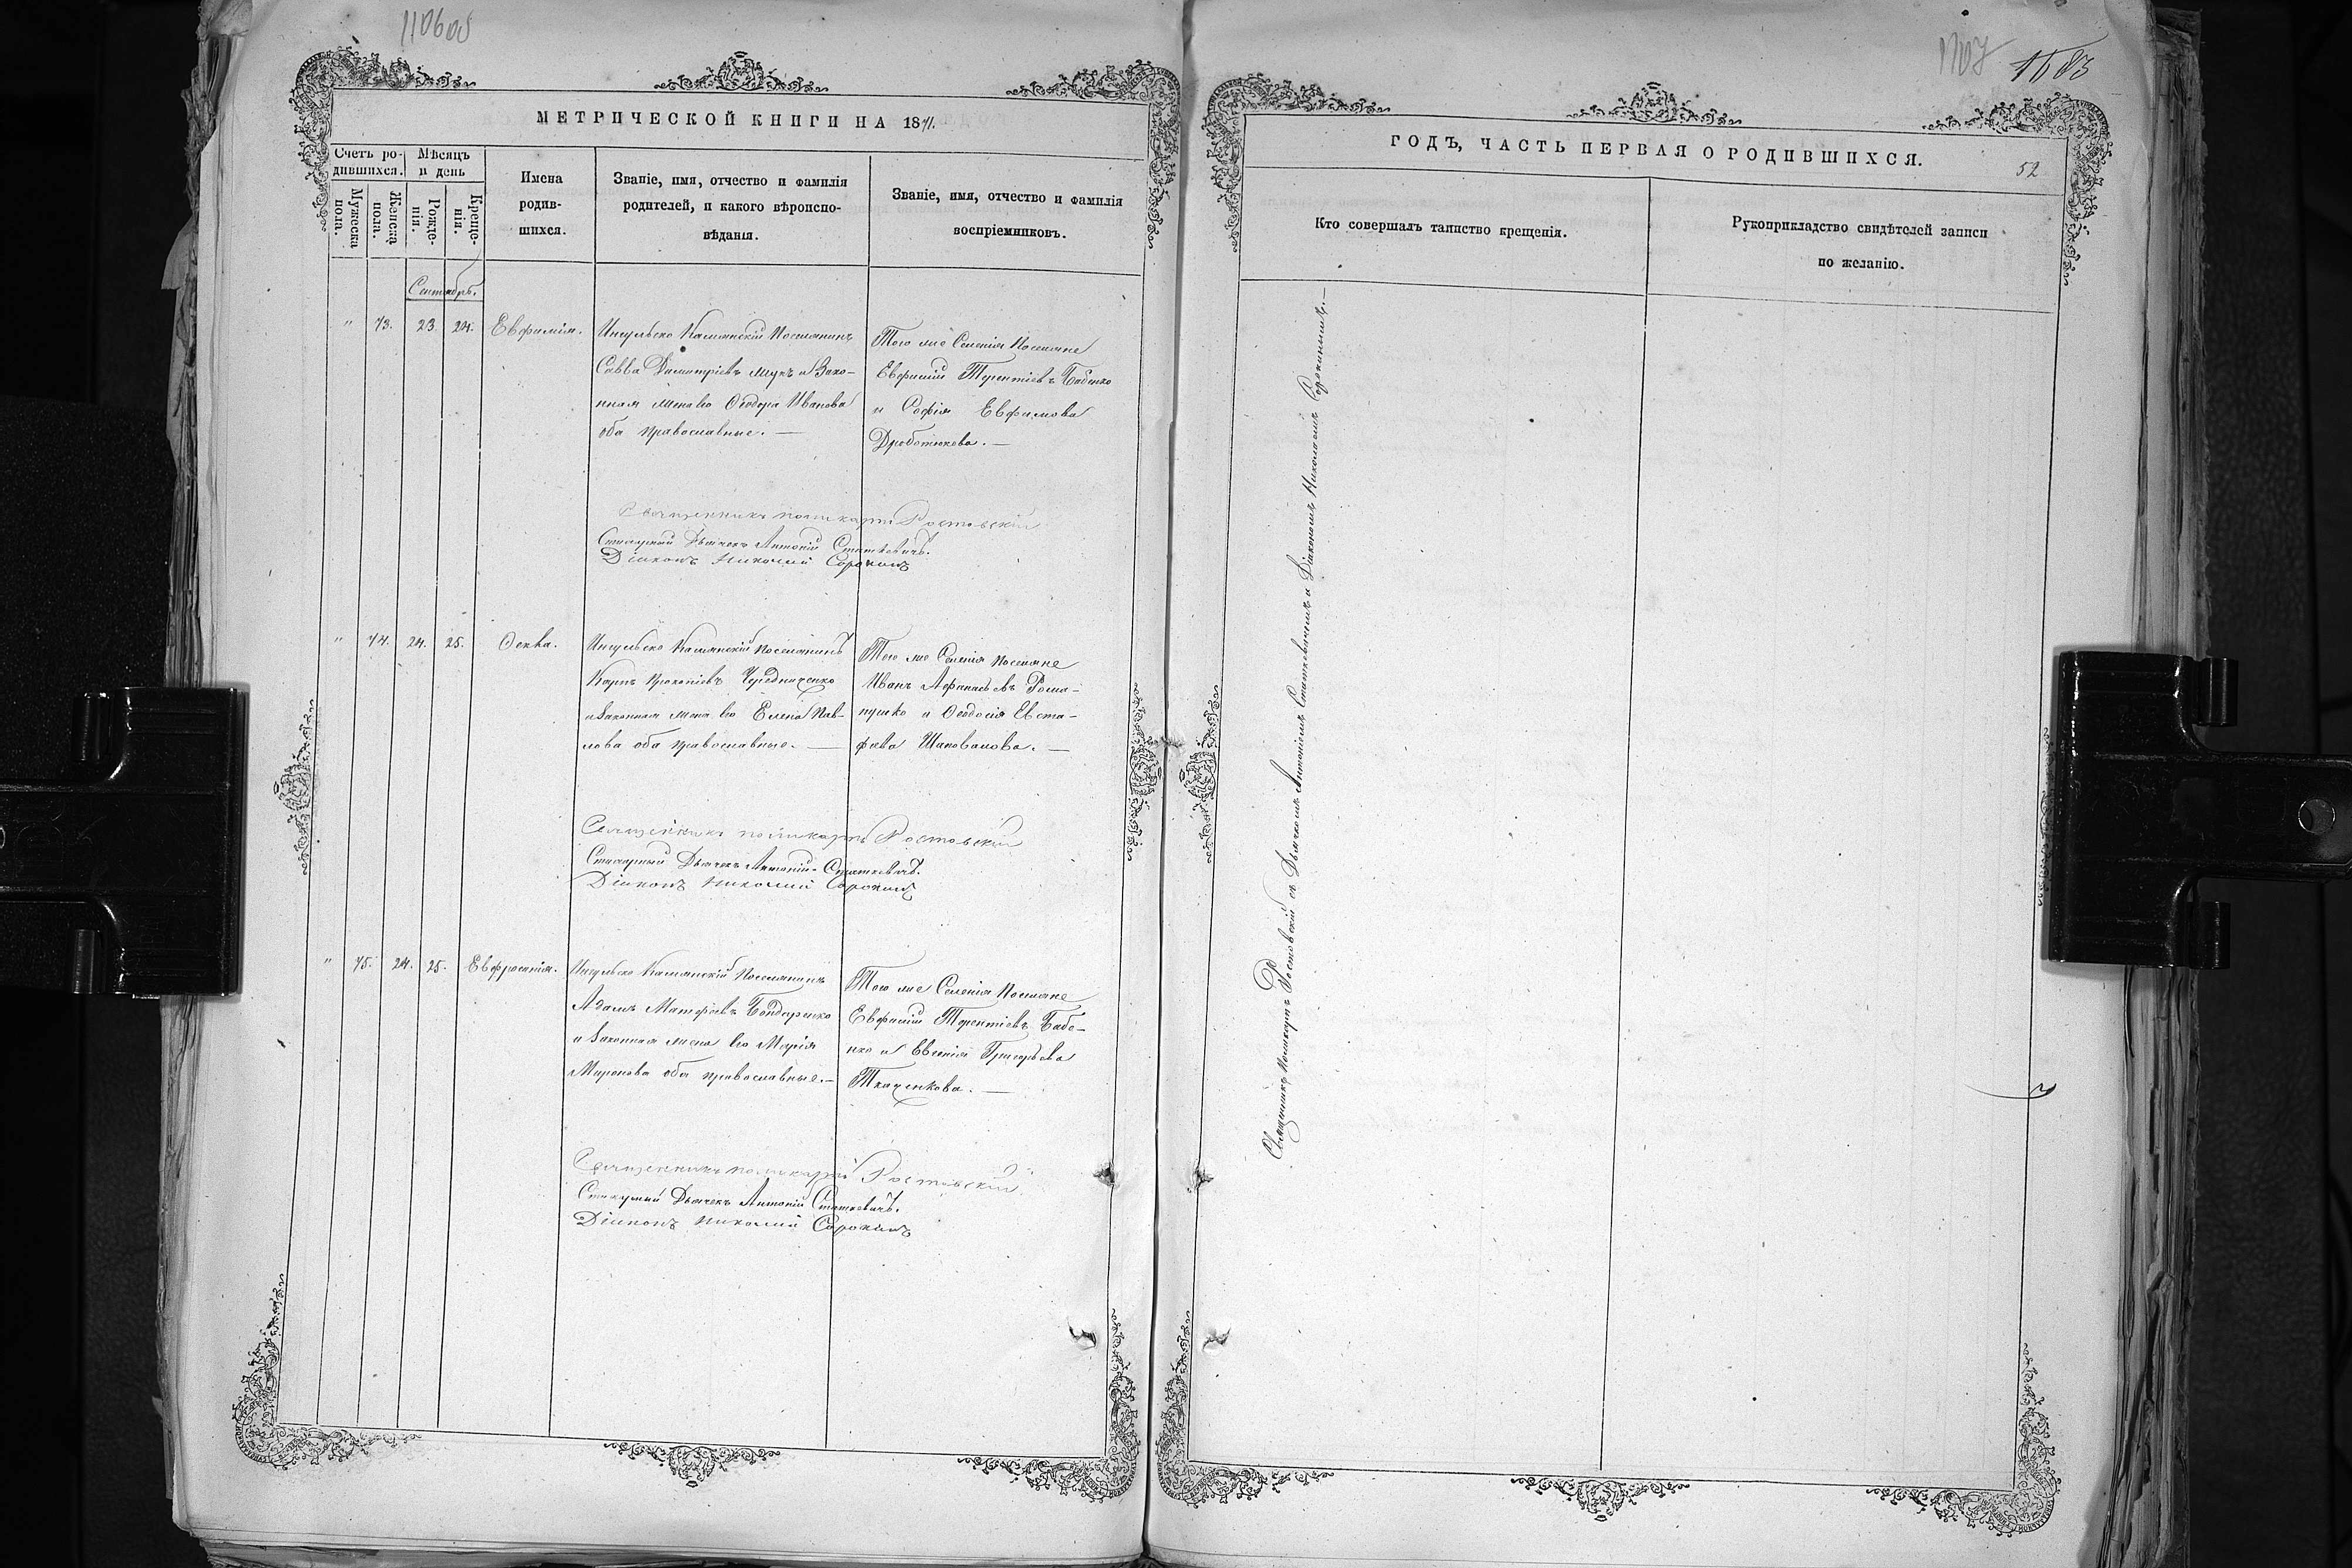 110608
МЕТРИЧЕСКОЙ КНИГИ НА 1871.
Счетъ ро-
дившихся.
Мѣсяцъ
и день
Мужска
пола.
Женска
пола.
Рожде-
нія.
Креще-
нія.
Имена
родив-
шихся.
Званіе, имя, отчество и фамилія
родителей, и какого вѣроиспо-
вѣданія.
Званіе, имя, отчество и фамилія
воспріемниковъ.
Сентябрь.
" 73. 23. 24. Евфимія.
Ингульско Каменскій Поселянинъ
Савва Димитріевъ Мукъ и Зако-
нная жена его Ѳеодора Иванова
оба православные. —
Того же Селенія Поселяне
Евфимій Терентіевъ Бабенко
и Софія Евфимова
Дроботюкова. —
Священникъ Поликарпъ Ростовскій
Стихарный Дьячекъ Антоній Статкевичъ.
Діаконъ Николай Сорокинъ
" 74. 24. 25. Ѳекла.
Ингульско Каменскій Поселянинъ
Карпъ Прокопіевъ Чередниченко
и Законная жена его Елена Пав-
лова оба православные. —
Того же Селенія Поселяне
Иванъ Афанасьевъ
и Ѳеодосія Евста-
фіева Шаповалова. —
Священникъ Поликарпъ Ростовскій
Стихарный Дьячекъ Антоній Статкевичъ.
Діаконъ Николай Сорокинъ
" 75. 24. 25. Евфросинія.
Ингульско Каменскій Поселянинъ
Адамъ Матфѣевъ Бондаренко
и Законная жена его Марія
Миронова оба православные. —
Того же Селенія Поселяне
Евфимій Терентіевъ Бабе-
нко и Евгенія Григорьева
Ткаченкова. —
Священникъ Поликарпъ Ростовскій
Стихарный Дьячекъ Антоній Статкевичъ.
Діаконъ Николай Сорокинъ
1707
1583
ГОДЪ, ЧАСТЬ ПЕРВАЯ О РОДИВШИХСЯ.
52
Кто совершалъ таинство крещенія.
Рукоприкладство свидѣтелей записи
по желанію.
Священникъ Поликарпъ Ростовскій съ Дьячкомъ Антоніемъ Статкевичемъ и Діакономъ Николаемъ Сорокинымъ. —